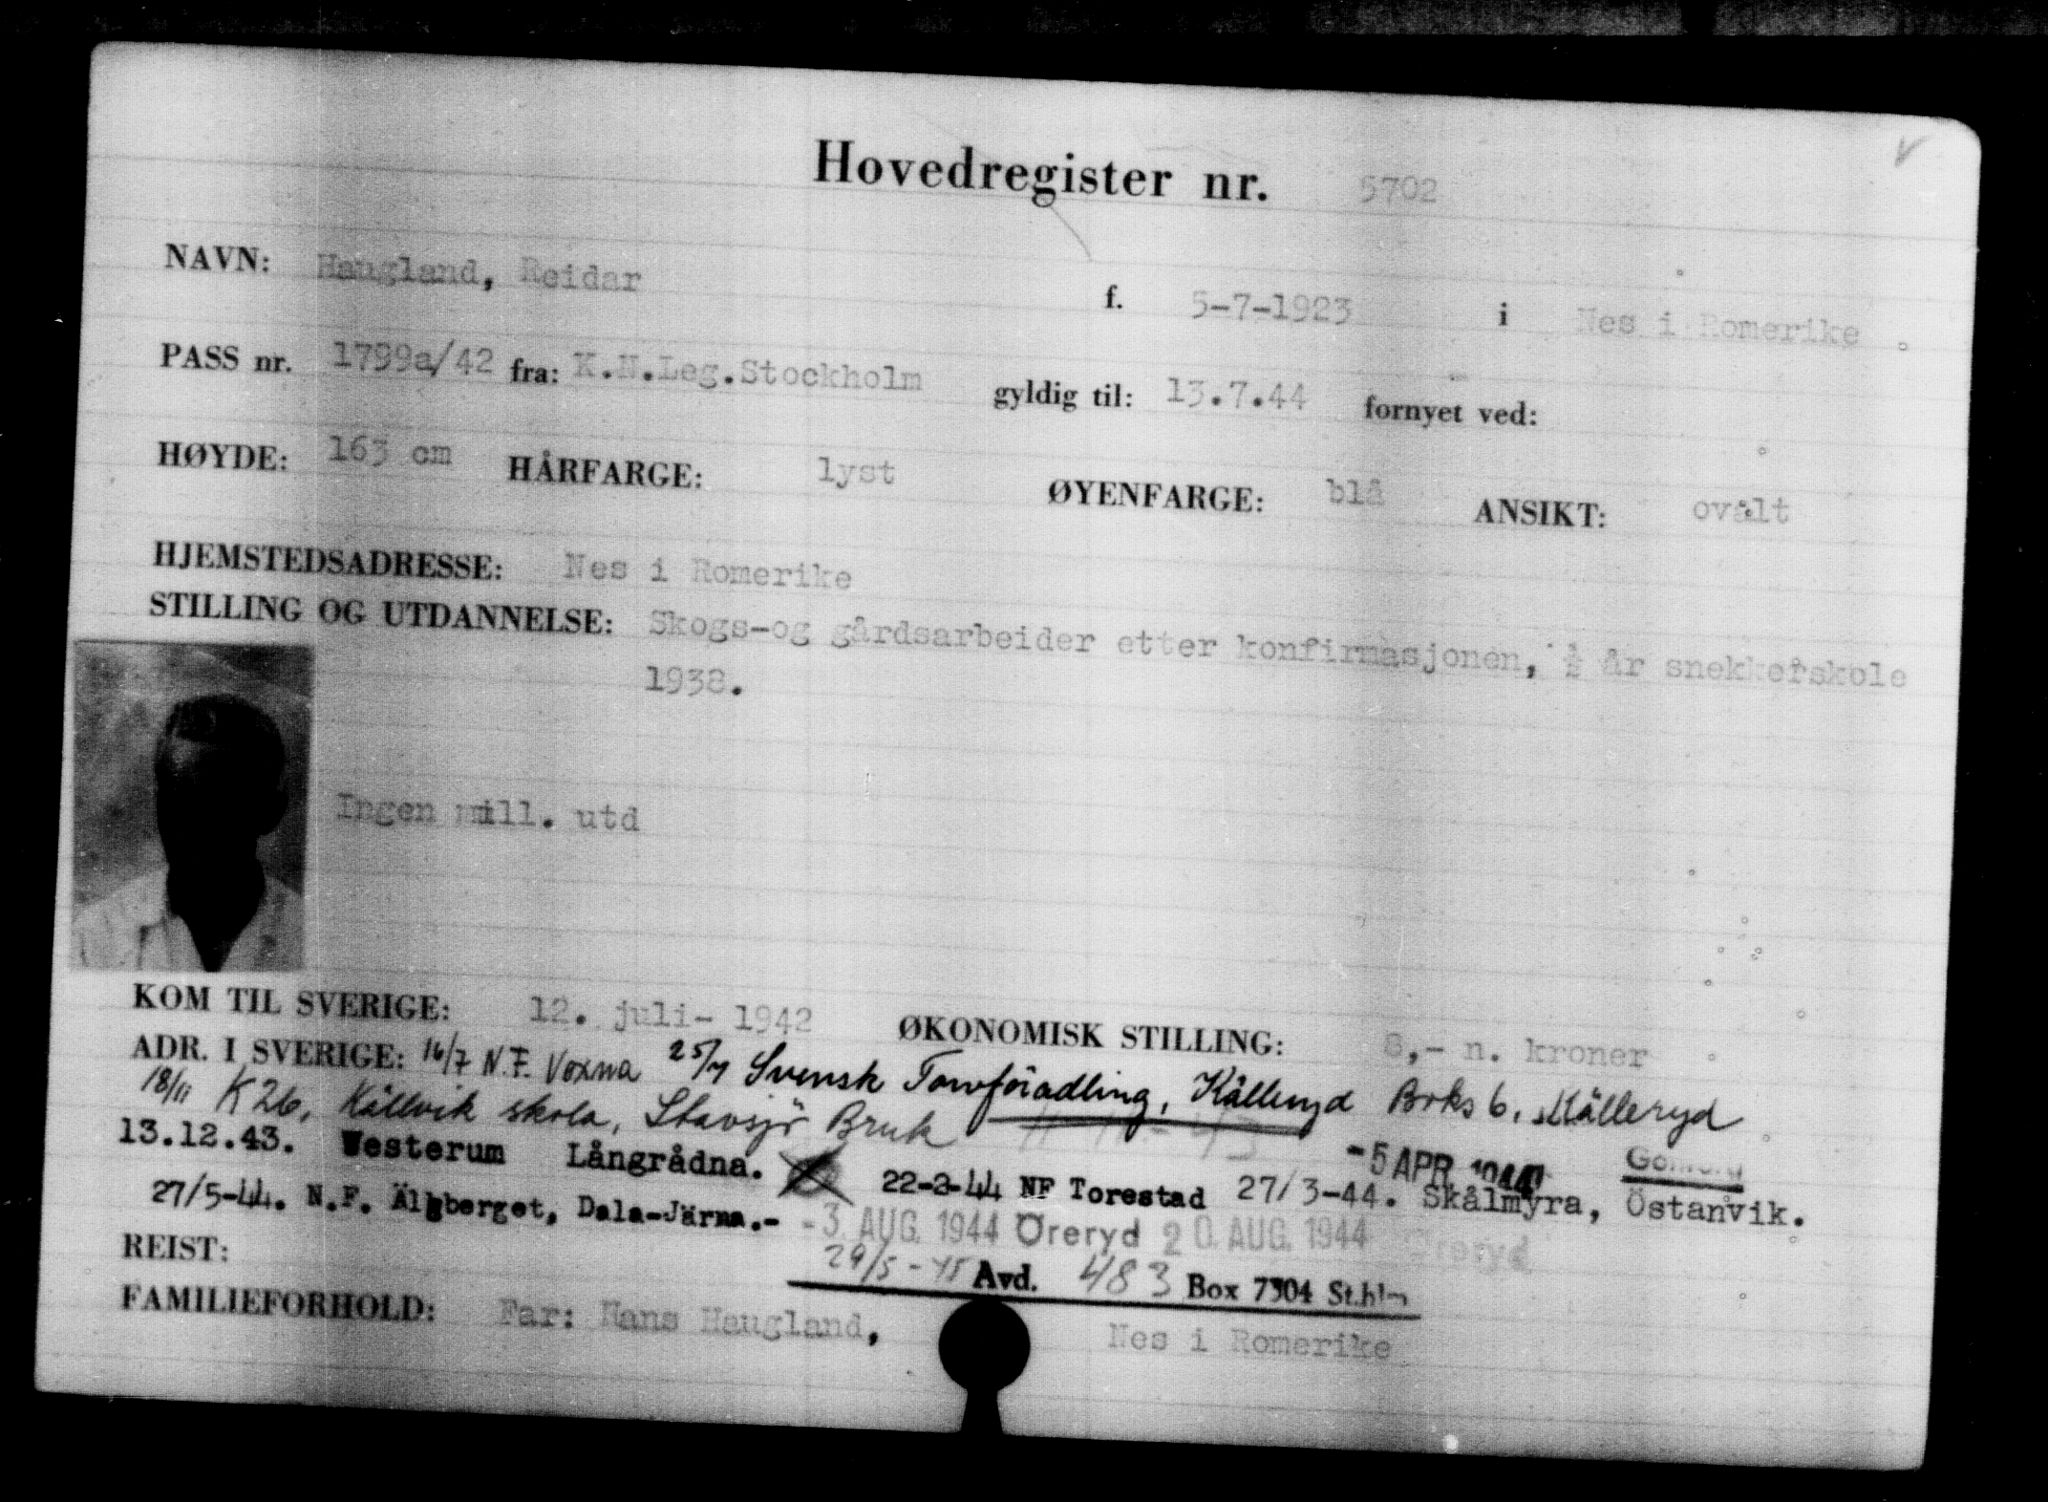 Hovedregister nr. 5702
NAVN: Haugland, Reidar f. 5-7-1923 i Nes i Romerike
PASS nr. 1799a/42 fra: K.N.Leg.Stockholm gyldig til: 13.7.44 fornyet ved:
HØYDE: 163 cm HÅRFARGE: lyst ØYENFARGE: blå ANSIKT: ovalt
HJEMSTEDSADRESSE: Nes i Romerike
STILLING OG UTDANNELSE: Skogs-og gårdsarbeider etter konfirmasjonen, ½ år snekkerskole
1938.
Ingen mill. utd
KOM TIL SVERIGE: 12. juli- 1942 ØKONOMISK STILLING: 8,- n. kroner
ADR. I SVERIGE: 16/7 N.F. Voxna 25/7 Svensk Torvförädling, Källeryd Boks 6, Källeryd
18/11 K26, Källvik skola, Stavsjö Bruk
13.12.43. Westerum Långrådna. 22-2-44 NF Torestad 27/3-44. Skålmyra, Östanvik.
-5 APR. 1944
27/5-44. N.F. Älgberget, Dala-Järna.- -3. AUG. 1944 Öreryd 20. AUG. 1944 Öreryd
REIST: 29/5-45 Avd. 483 Box 7304 St.hlm
FAMILIEFORHOLD: Far: Hans Haugland, Nes i Romerike